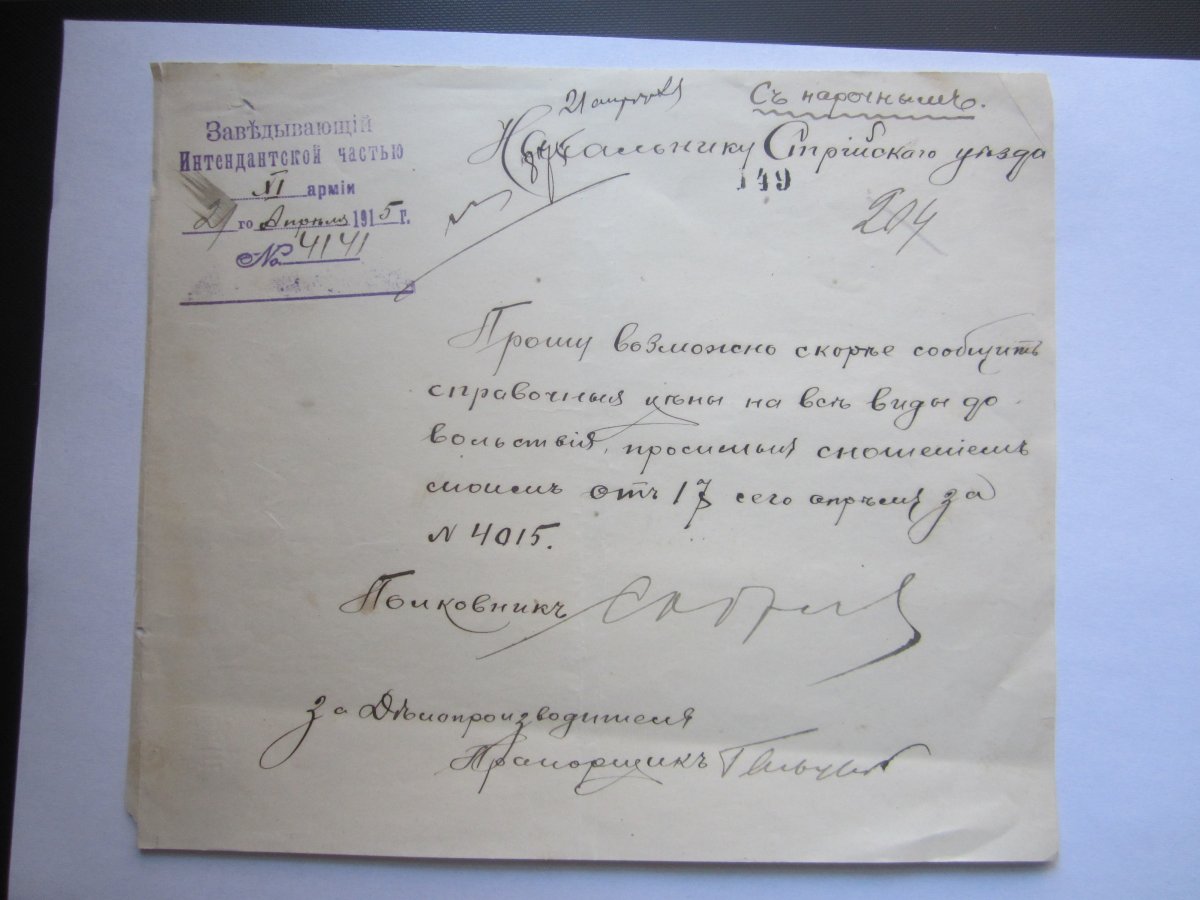 Завѣдывающій
Интендантской частью
XI арміи
21 го Апрѣля 1915 г.
№ 4141
21 апрѣля
Съ нарочнымъ.
Начальнику Стрійскаго уѣзда
149
204
Прошу возможно скорѣе сообщить
справочныя цѣны на всѣ виды до
вольствія, просимыя сношеніемъ
моимъ отъ 17 сего апрѣля за
N 4015.
Полковникъ
За Дѣлопроизводителя
Прапорщикъ